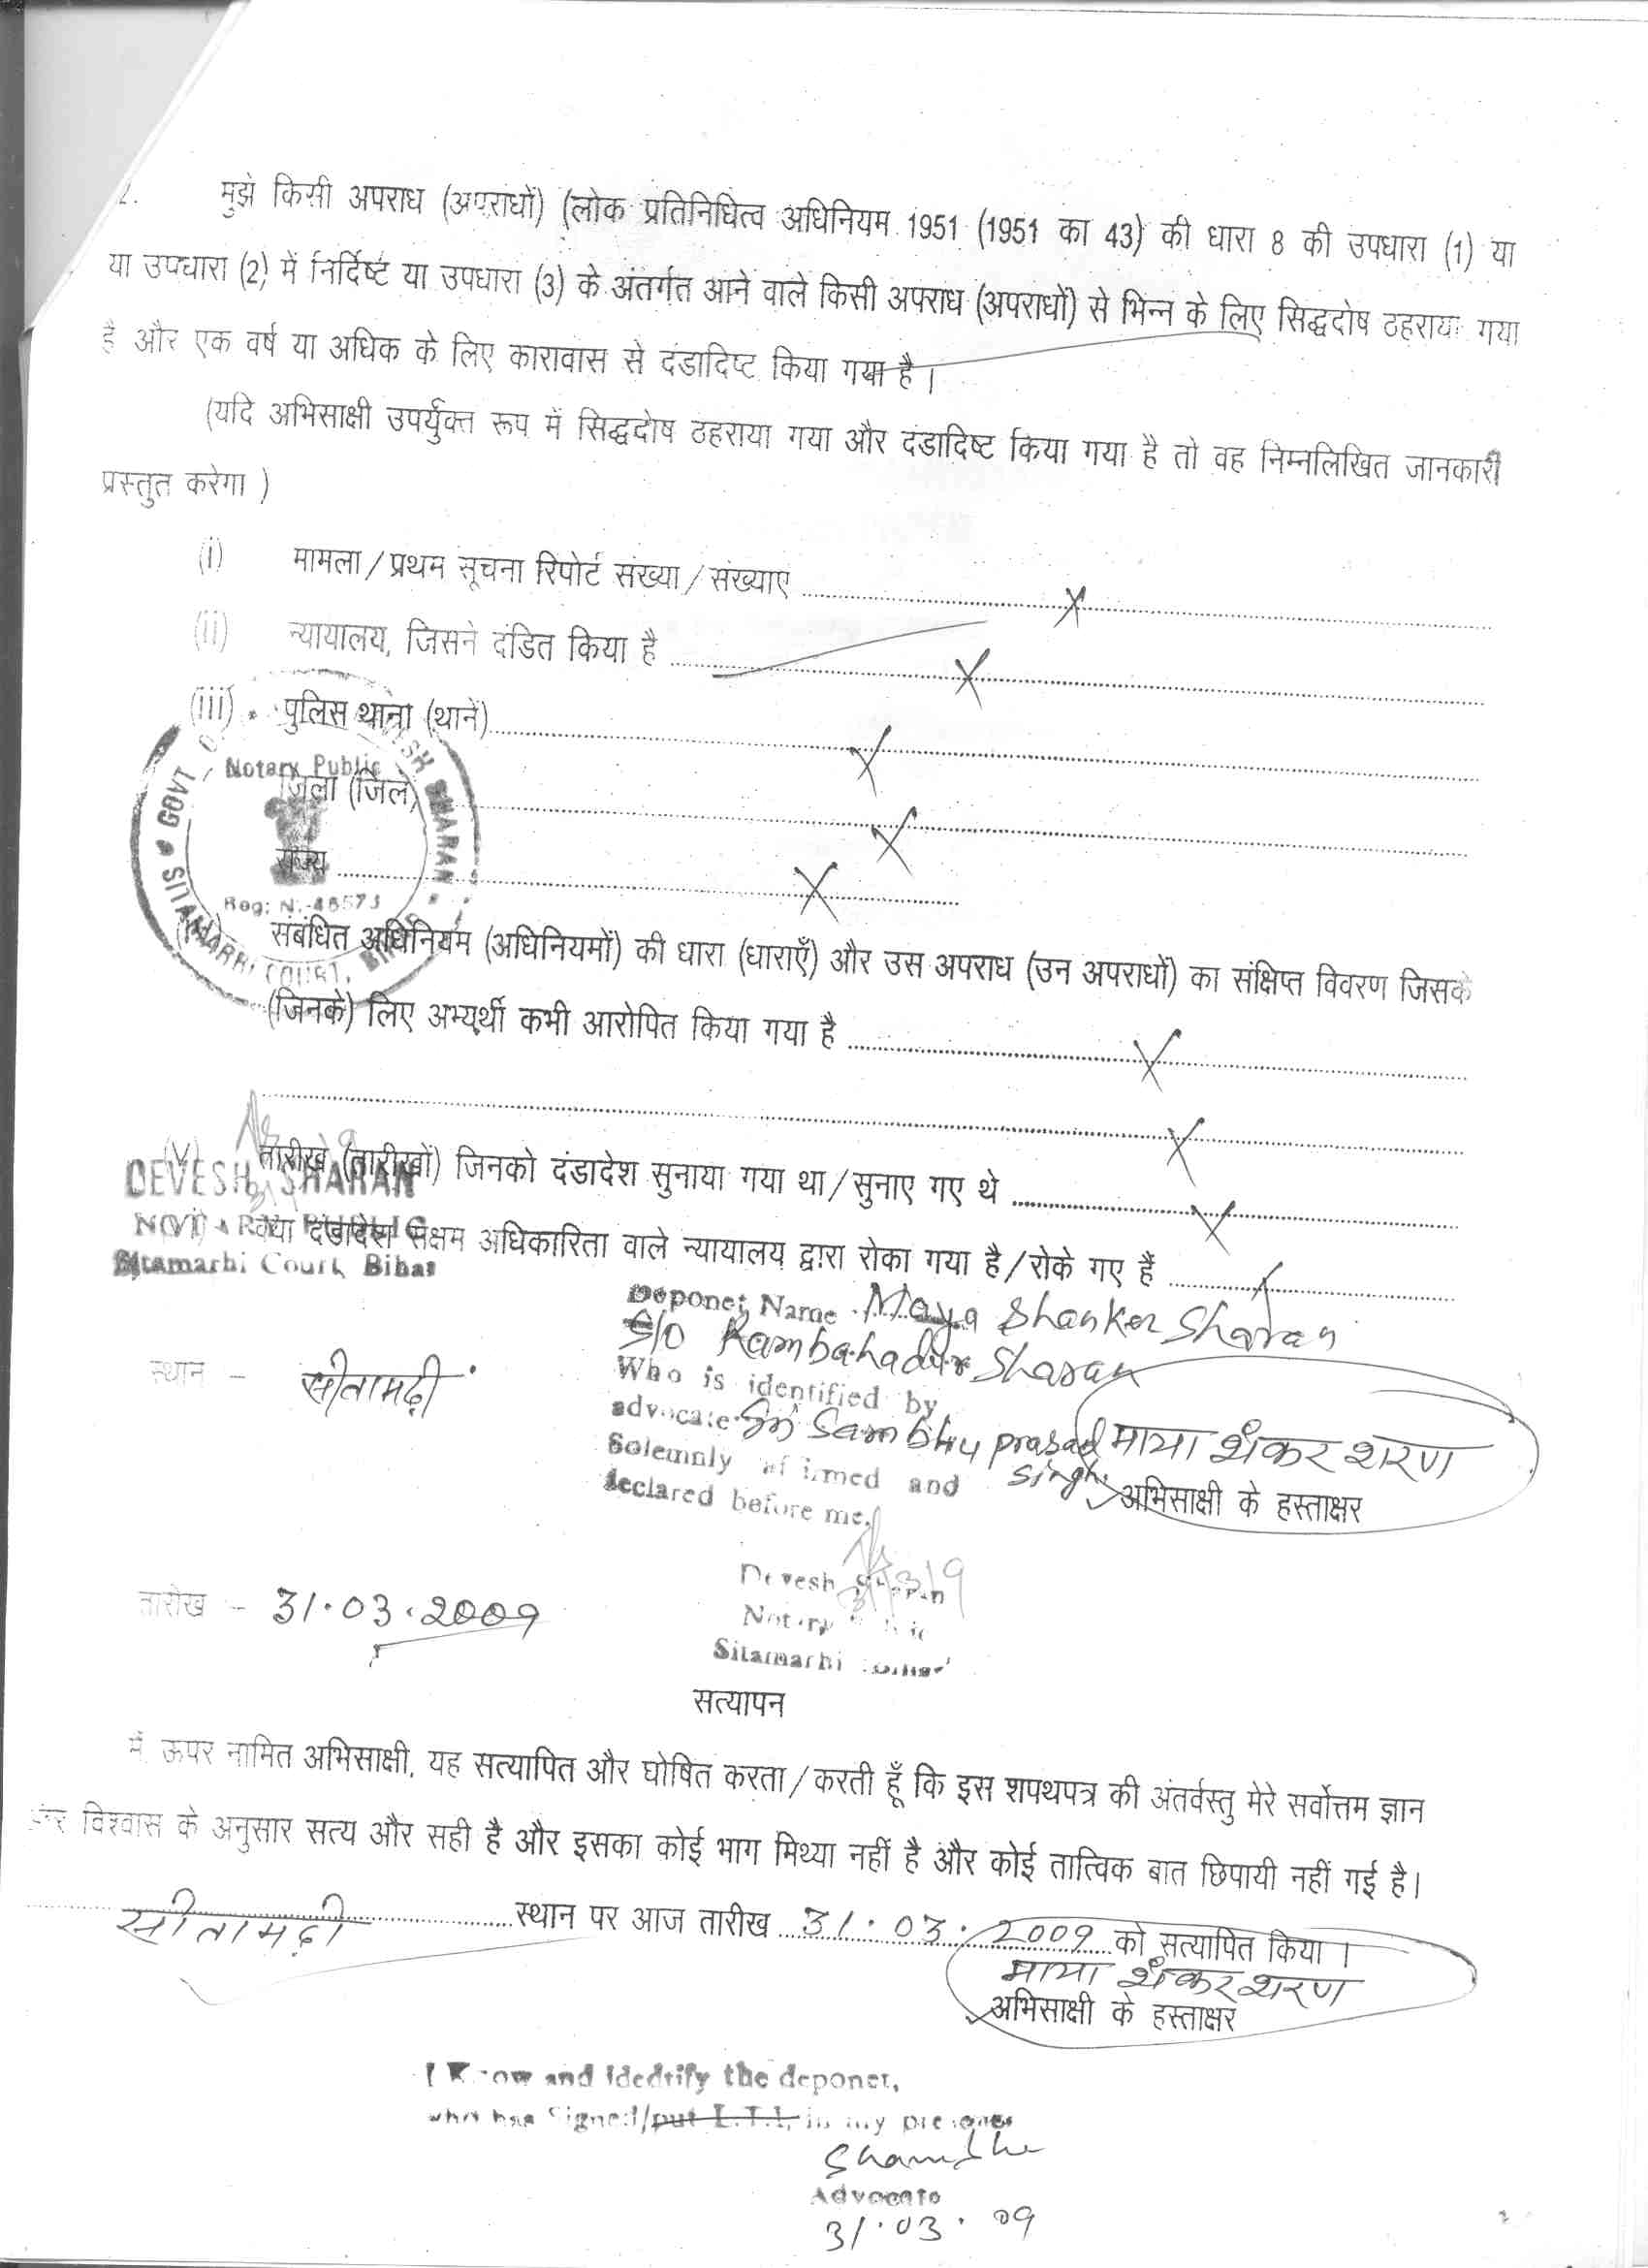 2. मुझे किसी अपराध (अपराधों) (लोक प्रतिनिधित्व अधिनियम 1951 (1951 का 43) की धारा 8 की उपधारा (1) या
या उपधारा (2) में निर्दिष्ट या उपधारा (3) के अंतर्गत आने वाले किसी अपराध (अपराधों) से भिन्न के लिए सिद्धदोष ठहराया गया
है और एक वर्ष या अधिक के लिए कारावास से दंडादिष्ट किया गया है।
(यदि अभिसाक्षी उपर्युक्त रूप में सिद्धदोष ठहराया गया और दंडादिष्ट किया गया है तो वह निम्नलिखित जानकारी
प्रस्तुत करेगा )
(i) मामला/प्रथम सूचना रिपोर्ट संख्या/संख्याए ........ X
(ii) न्यायालय, जिसने दंडित किया है ........ X
(iii) पुलिस थाना (थाने) ........ X
जिला (जिले) ........ X
राज्य ........ X
GOVT DEVESH SHARAN SITAMARHI COURT, BIHAR
Notary Public
Reg: N.-
संबंधित अधिनियम (अधिनियमों) की धारा (धाराएँ) और उस अपराध (उन अपराधों) का संक्षिप्त विवरण जिसके
(जिनके) लिए अभ्यर्थी कभी आरोपित किया गया है ........ X
........ X
(v) तारीख (तारीखों) जिनको दंडादेश सुनाया गया था/सुनाए गए थे ........ X
(vi) क्या दंडादेश सक्षम अधिकारिता वाले न्यायालय द्वारा रोका गया है/रोके गए हैं ........ X
DEVESH SHARAN
NOTARY PUBLIC
Sitamarhi Court, Bihar
Deponet Name Maya Shanker Sharan
S/o Rambahadur Sharan
Who is identified by
advocate Sri Sambhu prasad singh
Solemnly affirmed and
declared before me.
स्थान - सीतामढ़ी
माया शंकर शरण
अभिसाक्षी के हस्ताक्षर
Devesh Sharan
Notary Public
Sitamarhi Bihar
तारीख - 31.03.2009
सत्यापन
मैं ऊपर नामित अभिसाक्षी, यह सत्यापित और घोषित करता/करती हूँ कि इस शपथपत्र की अंतर्वस्तु मेरे सर्वोत्तम ज्ञान
और विश्वास के अनुसार सत्य और सही है और इसका कोई भाग मिथ्या नहीं है और कोई तात्विक बात छिपायी नहीं गई है।
सीतामढ़ी ........ स्थान पर आज तारीख 31.03.2009 को सत्यापित किया ।
माया शंकर शरण
अभिसाक्षी के हस्ताक्षर
I Know and Idedtify the deponet,
who has Signed/put L.T.I. in my presence
Shambhu
Advocate
31.03.09